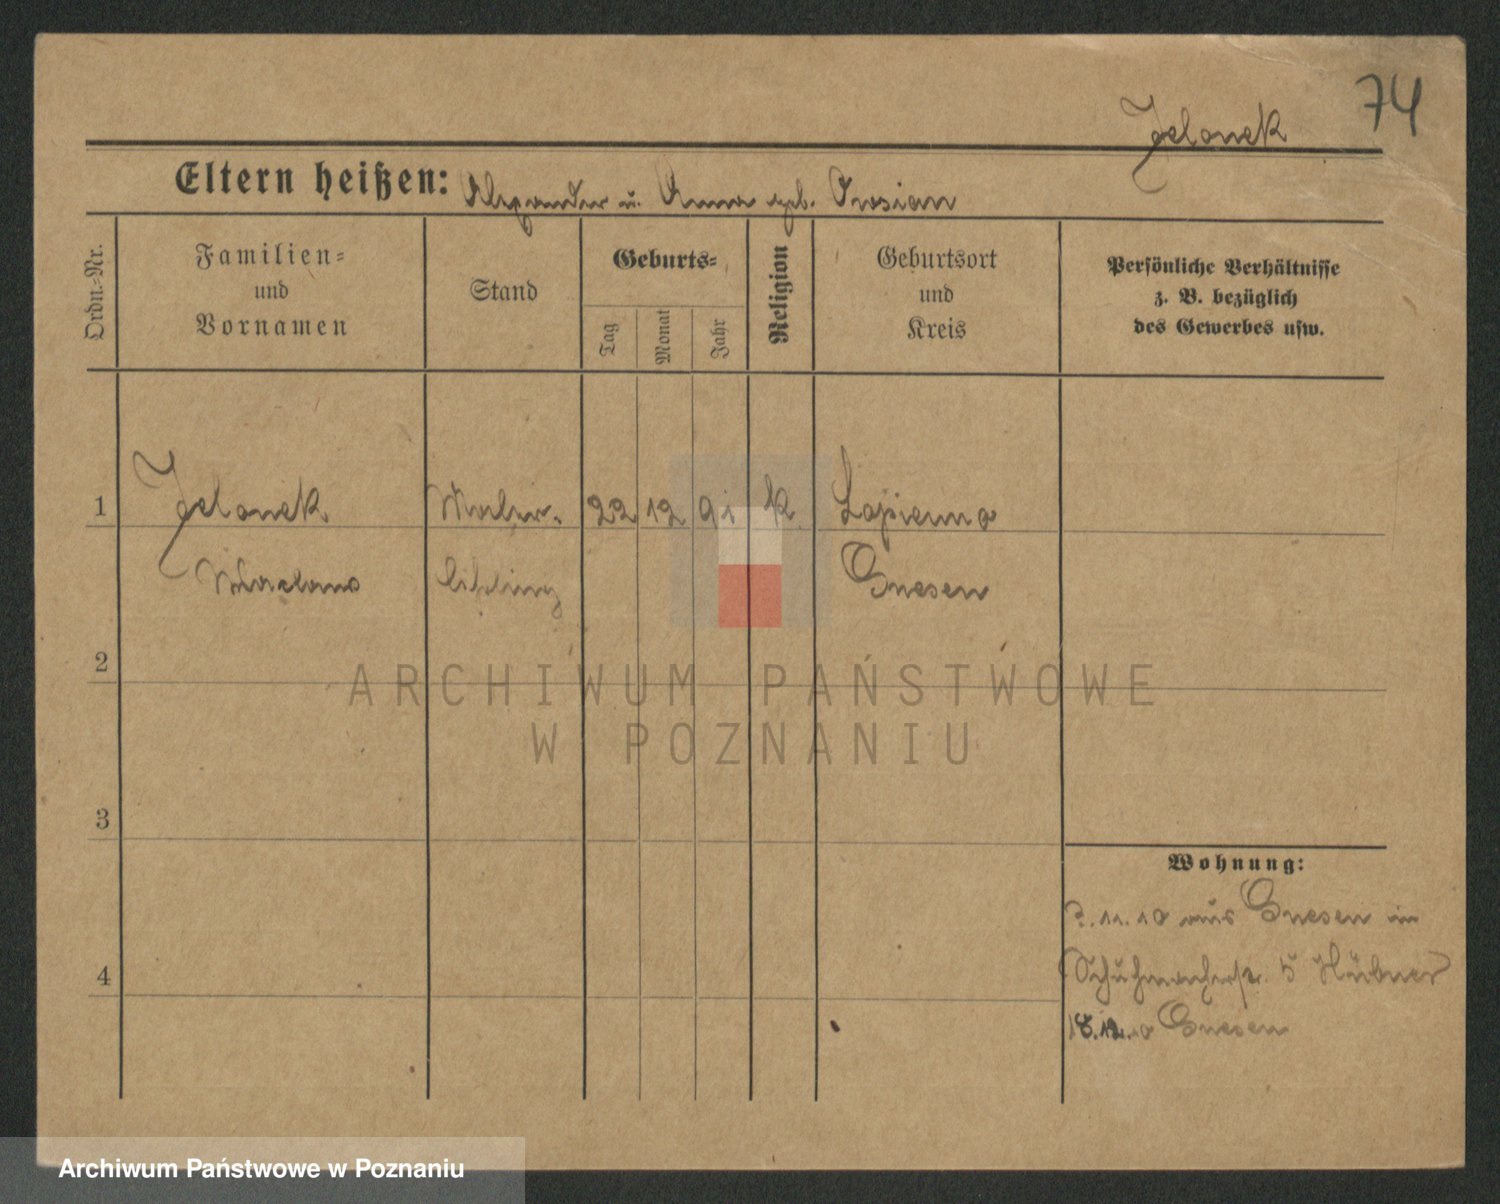 74
Jelonek
Eltern heißen: Alexander u. Anna geb.
Ordn.-Nr.
Familien-
und
Vornamen
Stand
Geburts-
Tag
Monat
Jahr
Religion
Geburtsort
und
Kreis
Persönliche Verhältnisse
z. B. bezüglich
des Gewerbes usw.
1 Jelonek Maler- 22 12 91 k. Lopienno
lehrling Gnesen
2
ARCHIWUM PAŃSTWOWE
W POZNANIU
3
Wohnung:
11.10 aus Gnesen in
4 Schuhmacherstr. 5 Hübner
18.12.10 Gnesen
Archiwum Państwowe w Poznaniu